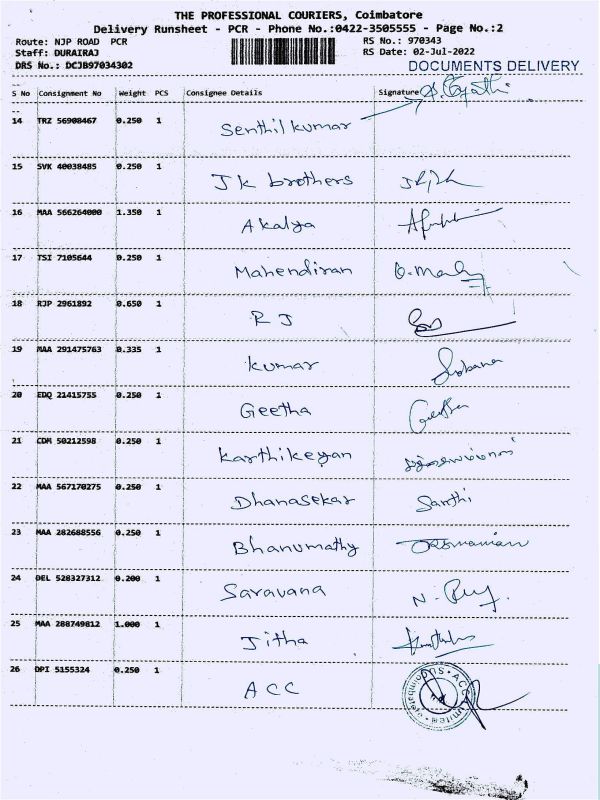 THE PROFESSIONAL COURIERS, Coimbatore
Delivery Runsheet - PCR - Phone No.:0422-3505555 - Page No.:2
Route: NJP ROAD PCR
RS No.: 970343
Staff: DURAIRAJ
RS Date: 02-Jul-2022
DRS No.: DCJB97034302
DOCUMENTS DELIVERY
S No Consignment No Weight PCS Consignee Details Signature
14 TRZ 56908467 0.250 1 Senthil kumar
15 SVK 40038485 0.250 1 JK brothers
16 MAA 566264000 1.350 1 Akalya
17 TSI 7105644 0.250 1 Mahendiran
18 RJP 2961892 0.650 1 RJ
19 MAA 291475763 0.335 1 Kumar
20 EDQ 21415755 0.250 1 Geetha Geetha
21 CDM 50212598 0.250 1 Karthikeyan
22 MAA 567170275 0.250 1 Dhanasekar Santhi
23 MAA 282688556 0.250 1 Bhanumathy
24 DEL 528327312 0.200 1 Saravana
25 MAA 288749812 1.000 1 Jitha
26 DPI 5155324 0.250 1 ACC